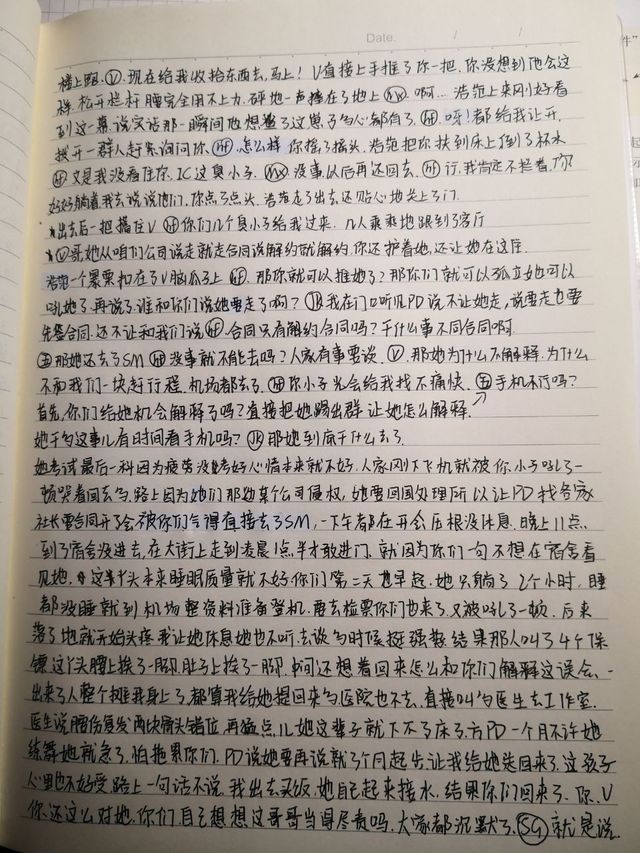 Date. / /
楼上跑. Ⓥ. 现在给我收拾东西去, 马上! V直接上手推了你一把. 你没想到他会这
样. 松开栏杆腰完全用不上力. 砰地一声摔在了地上 啊… 浩范上来刚好看
到这一幕. 说实话那一瞬间他想鲨了这崽子的心都有了. 呀! 都给我让开.
找开一群人赶紧询问你. 怎么样 你摇了摇头. 浩范把你扶到床上倒了杯水
又是我没看住你. IC这臭小子. 没事. 以后再还回去. 行. 我肯定不拦着. 你
好好躺着. 我去说说他们. 你点了点头. 浩范走了出去还贴心地关上了门.
出去后一把揪住V 你们几个臭小子给我过来. 几人乖乖地跟到了客厅
Ⓥ哥她从咱们公司说走就走合同说解约就解约. 你还护着她, 还让她在这住
浩范一个暴栗扣在了V脑瓜子上 那你就可以推她了? 那你们就可以孤立她可以
吼她了. 再说了. 谁和你们说她要走了啊? JK 我在门口听见PD说不让她走, 说要走也要
先签合同. 还不让和我们说 合同只有解约合同吗? 干什么事不同合同啊.
五 那她还去了SM 没事就不能去吗? 人家有事要谈. Ⓥ. 那她为什么不解释. 为什么
不和我们一块赶行程. 机场都去了. 你小子光会给我找不痛快. 五 手机不行吗?
首先, 你们给她机会解释了吗? 直接把她踢出群让她怎么解释.
她干的这事儿有时间看手机吗? JK 那她到底干什么去了
她考试最后一科因为疲劳没考好心情本来就不好. 人家刚下飞机就被你小子吼了一
顿哭着回去的. 路上因为她们那边某个公司侵权, 她要回国处理所以让PD找各家
社长要合同开了会被你们气得直接去了SM, 一下午都在开会压根没休息. 晚上11点.
到了宿舍没进去, 在大街上走到凌晨1点半才敢进门. 就因为你们一句不想在宿舍看
见她. 这丫头本来睡眠质量就不好. 你们第二天也早起. 她只躺了2个小时, 睡
都没睡就到机场整资料准备登机. 要去检票你们也来了. 又被吼了一顿. 后来
落了地就开始头疼. 我让她休息她也不听. 去说的时候挺强势. 结果那人叫了4个保
镖. 这丫头腰上挨了一脚. 肚子上挨了一脚. 中间还想着回来怎么和你们解释这误会. 一
出来了人整个摊我身上了. 都算我给她提回来的医院也不去. 直接叫的医生去工作室.
医生说腰伤复发两块骨头错位, 再猛点儿她这辈子就下不了床了. 方PD一个月不许她
练舞她就急了, 怕拖累你们. PD说她要再说就3个月起步让我给她送回来了. 这孩子
心里也不好受路上一句话不说. 我出去买饭. 她自己起来接水. 结果你们回来了. 你. V
你还这么对她. 你们自己想想这哥哥当得尽责吗. 大家都沉默了. SG 就是说.